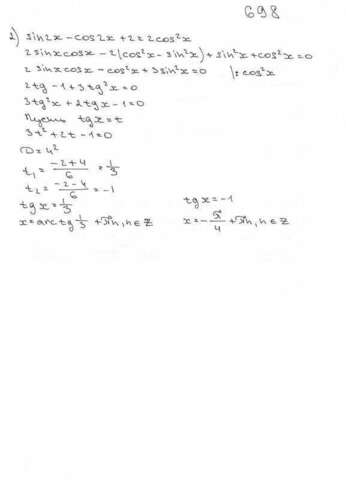 698
2) sin2x - cos2x + 2 = 2cos²x
2sinxcosx - 2(cos²x - sin²x) + sin²x + cos²x = 0
2 sinxcosx - cos²x + 3sin²x = 0 |: cos²x
2tg - 1 + 3tg²x = 0
3tg²x + 2tgx - 1 = 0
Пусть tgx = t
3t² + 2t - 1 = 0
D = 4²
t₁ = (-2+4)/6 = 1/3
t₂ = (-2-4)/6 = -1
tgx = 1/3 tgx = -1
x = arctg 1/3 + πn, n ∈ Z x = -π/4 + πn, n ∈ Z